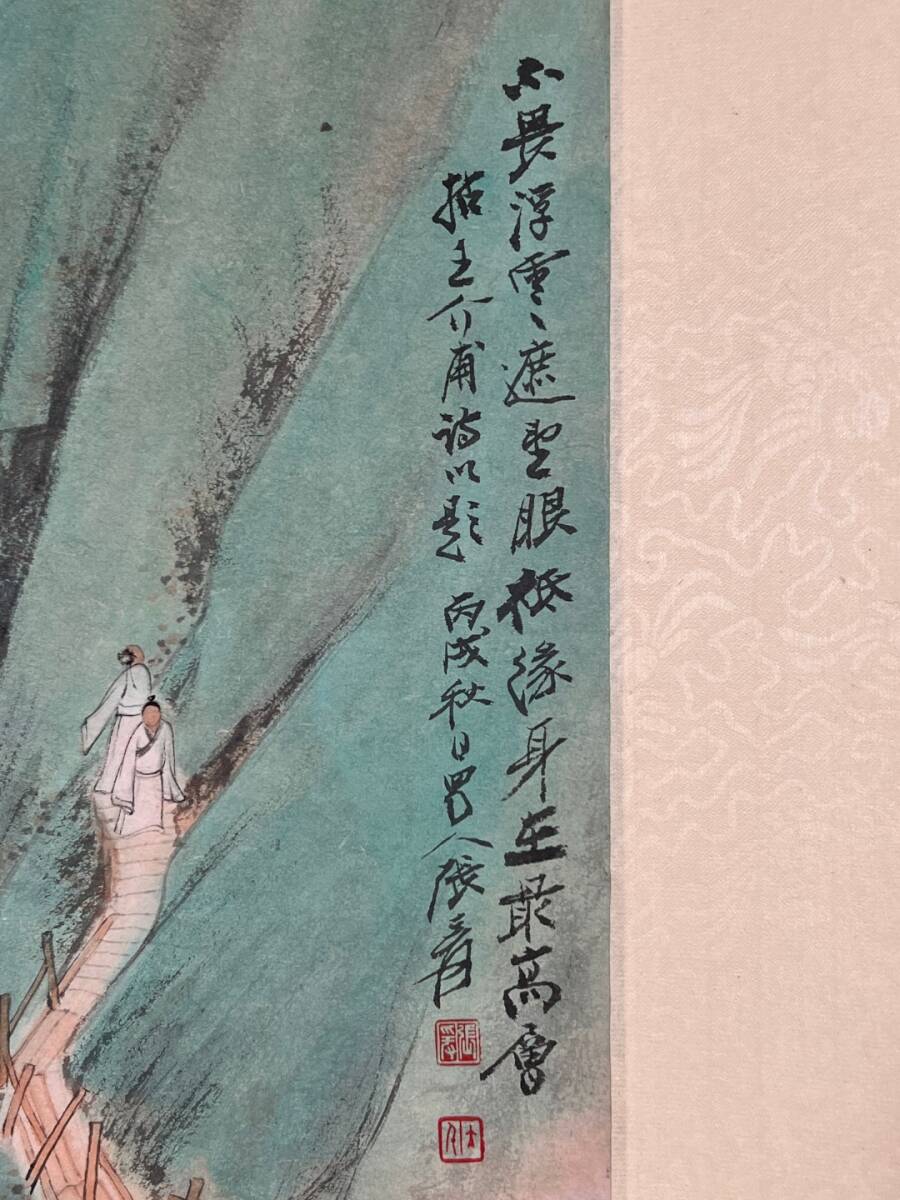 不畏浮雲遮望眼祗緣身在最高層
拈王介甫詩以題 丙戌秋日蜀人張爰
張爰